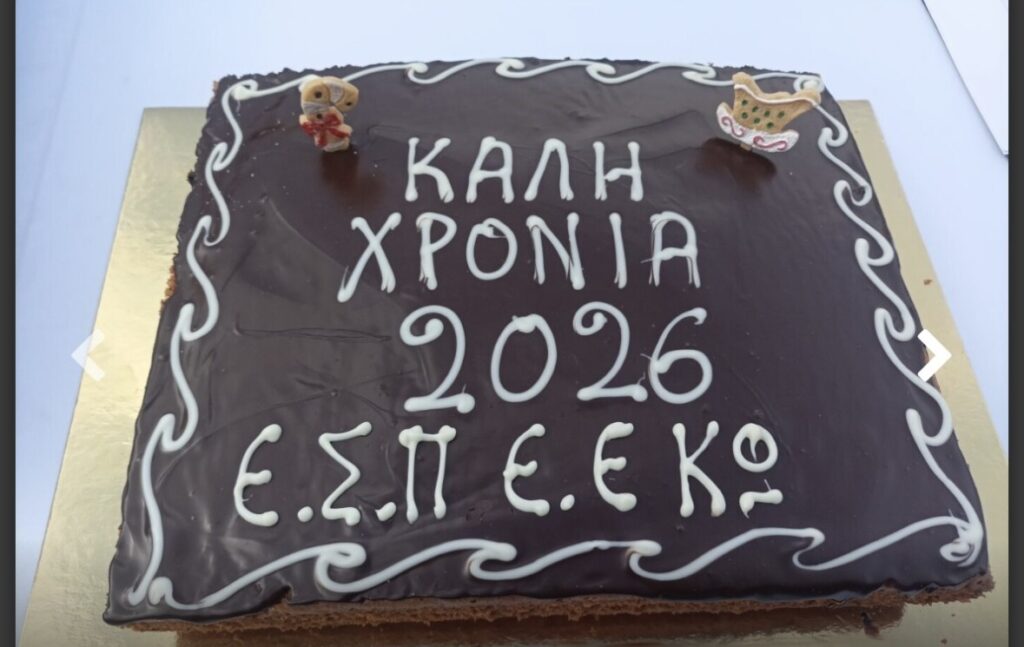 ΚΑΛΗ
ΧΡΟΝΙΑ
2026
Ε.Σ.Π Ε.Ε ΚΩ